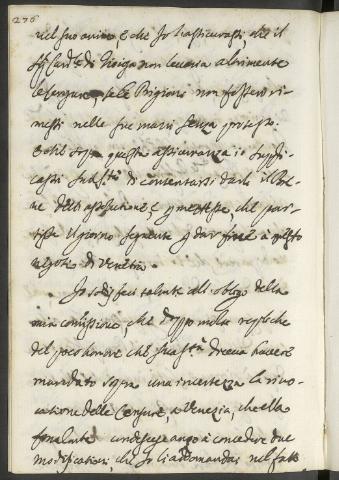 276
nel suo animo, e che io l'assicurassi, che il
S.r Card.le di Gioiosa non leveria altrimente
le Censure, se le Prigioni non fossero ri-
messi nelle sue mani senza protesto.
E che sopra questa assicuranza io suppli-
cassi Sua S.tà di contentarsi darli il Bre-
ve dell'assolutione, e permettesse, che par-
tisse il giorno seguente per dar fine à questo
negotio di Venetia.
Io sodisfeci talmente all'obligo della
mia comissione, che doppo molte repliche
del poco honore che Sua S.tà diceva havere
mandato sopra una incertezza la rivo-
catione delle Censure, à Venezia, che ella
finalmente condescese anco à concedere due
modificationi, che io li addomandai nel fatto